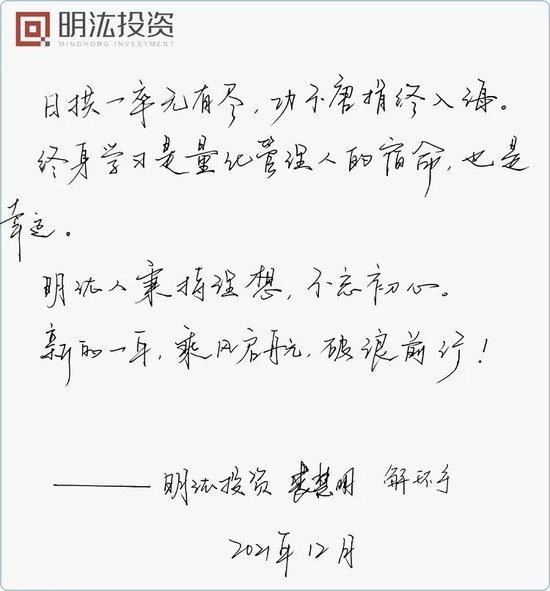 明汯投资
MINGHONG INVESTMENT
日拱一卒无有尽，功不唐捐终入海。
终身学习是量化管理人的宿命，也是
幸运。
明汯人秉持理想，不忘初心。
新的一年，乘风启航，破浪前行！
——明汯投资 裘慧明 解环宇
2021年12月